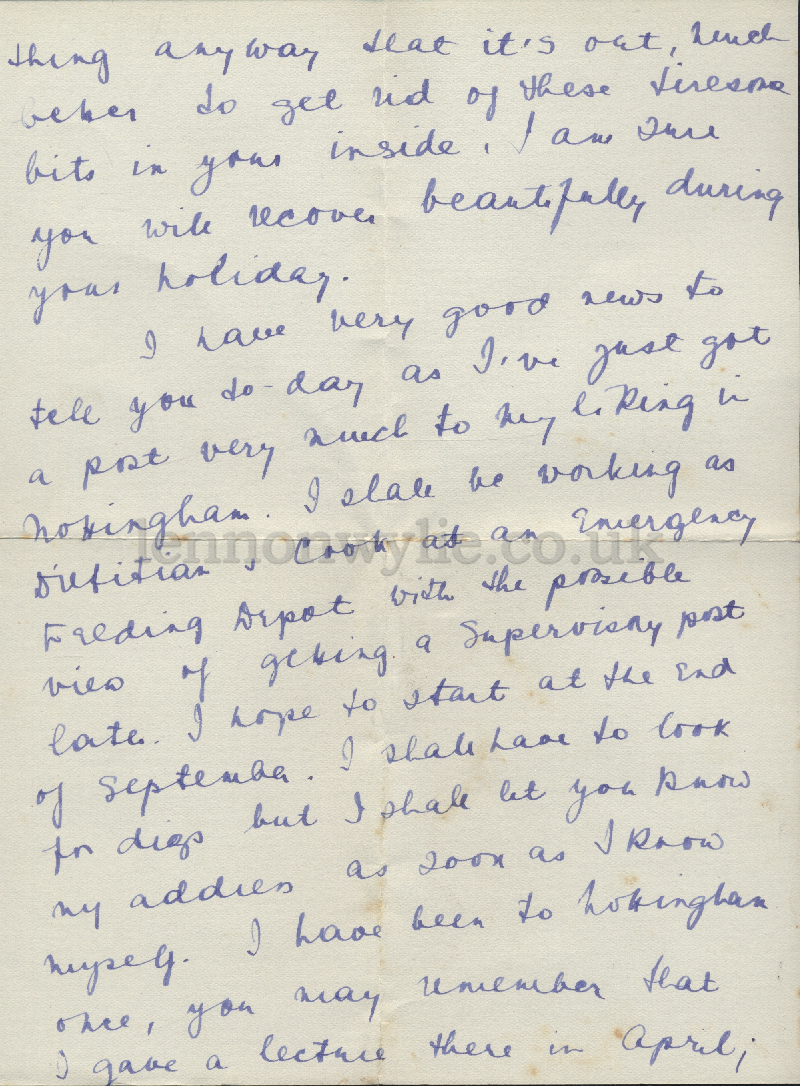 thing anyway that it's out, much
better to get rid of these tiresome
bits in your inside. I am sure
you will recover beautifully during
your holiday.
I have very good news to
tell you to-day as I've just got
a post very much to my liking in
Nottingham. I shall be working as
Dietitian & Cook at an Emergency
lennonwylie.co.uk
Feeding Depot with the possible
view of getting a Supervisory post
later. I hope to start at the end
of September. I shall have to look
for digs but I shall let you know
my address as soon as I know
myself. I have been to Nottingham
once, you may remember that
I gave a lecture there in April;